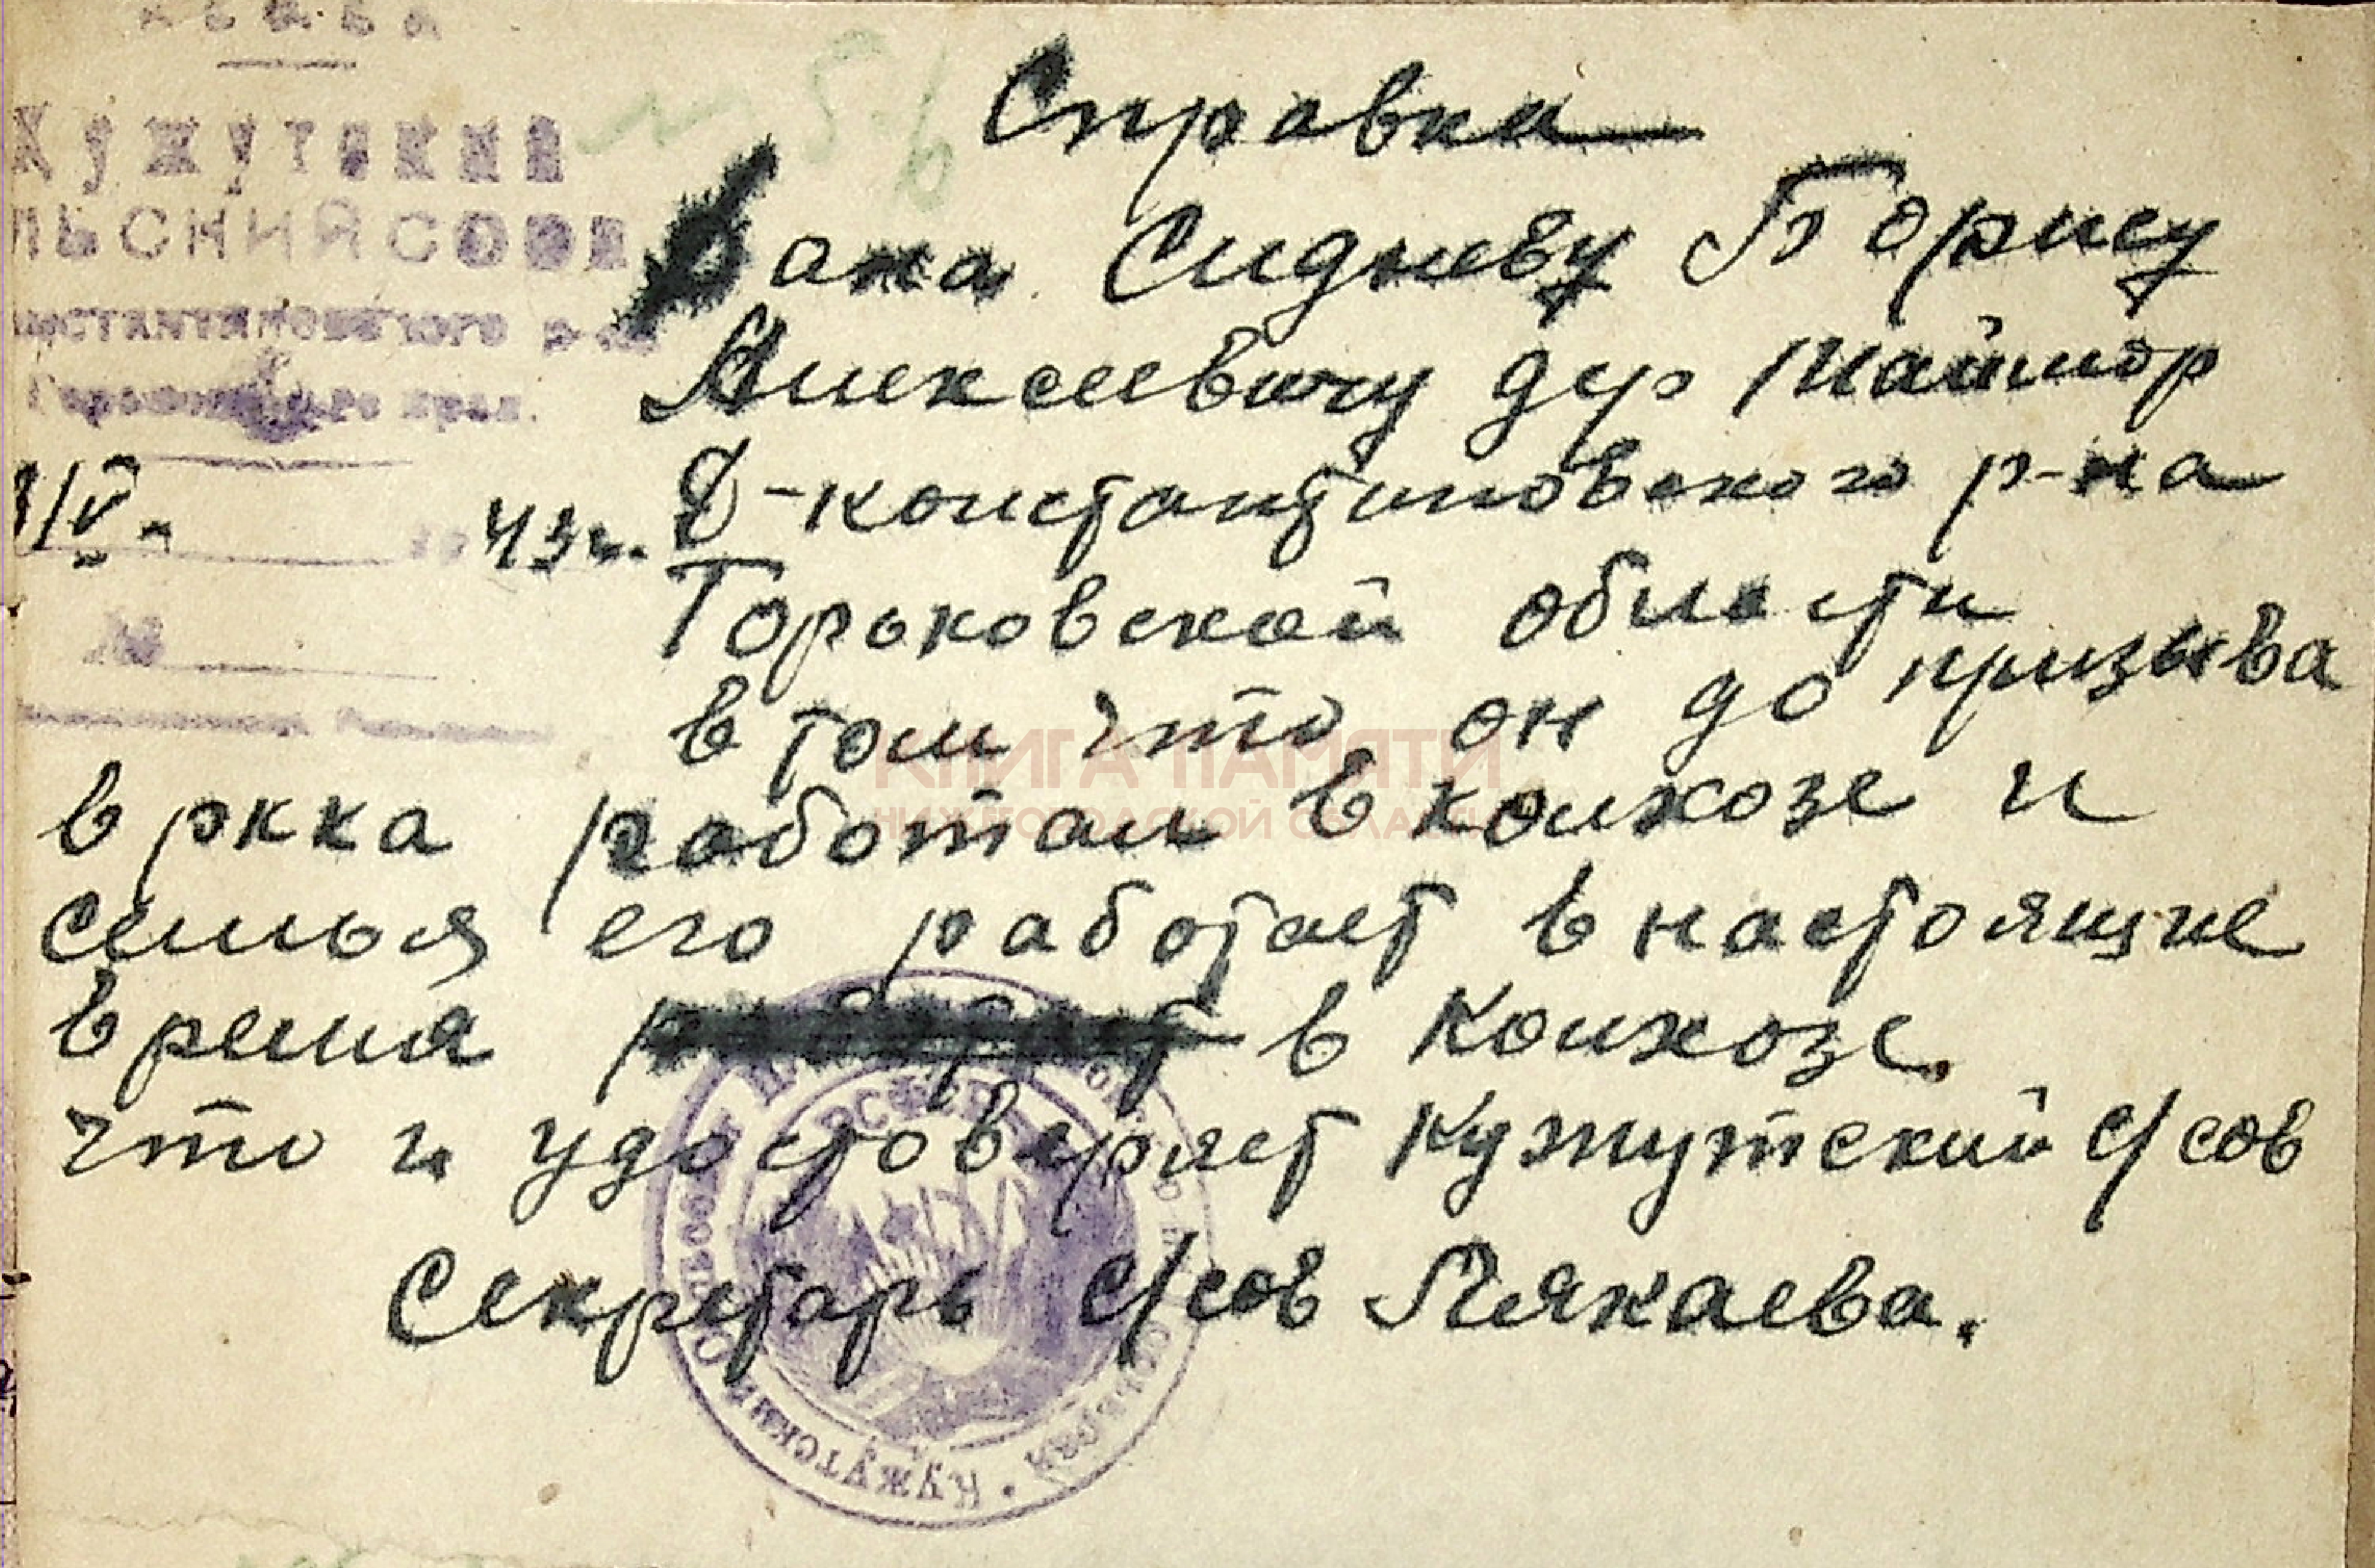 Кужутский
льский совет
нстантиновского р-на
Горьковского края.
1/V - 43г.
№
Справка
Дана Сидневу Борису
Алексеевичу дер Маймор
Д-константиновского р-на
Горьковской области
в том что он до призыва
в ркка работал в колхозе и
семья его работает в настоящие
время в колхозе.
что и удостоверяет Кужутский с/сов
Секретарь с/сов Пякаева.
КНИГА ПАМЯТИ
НИЖЕГОРОДСКОЙ ОБЛАСТИ
РСФСР
Кужутский